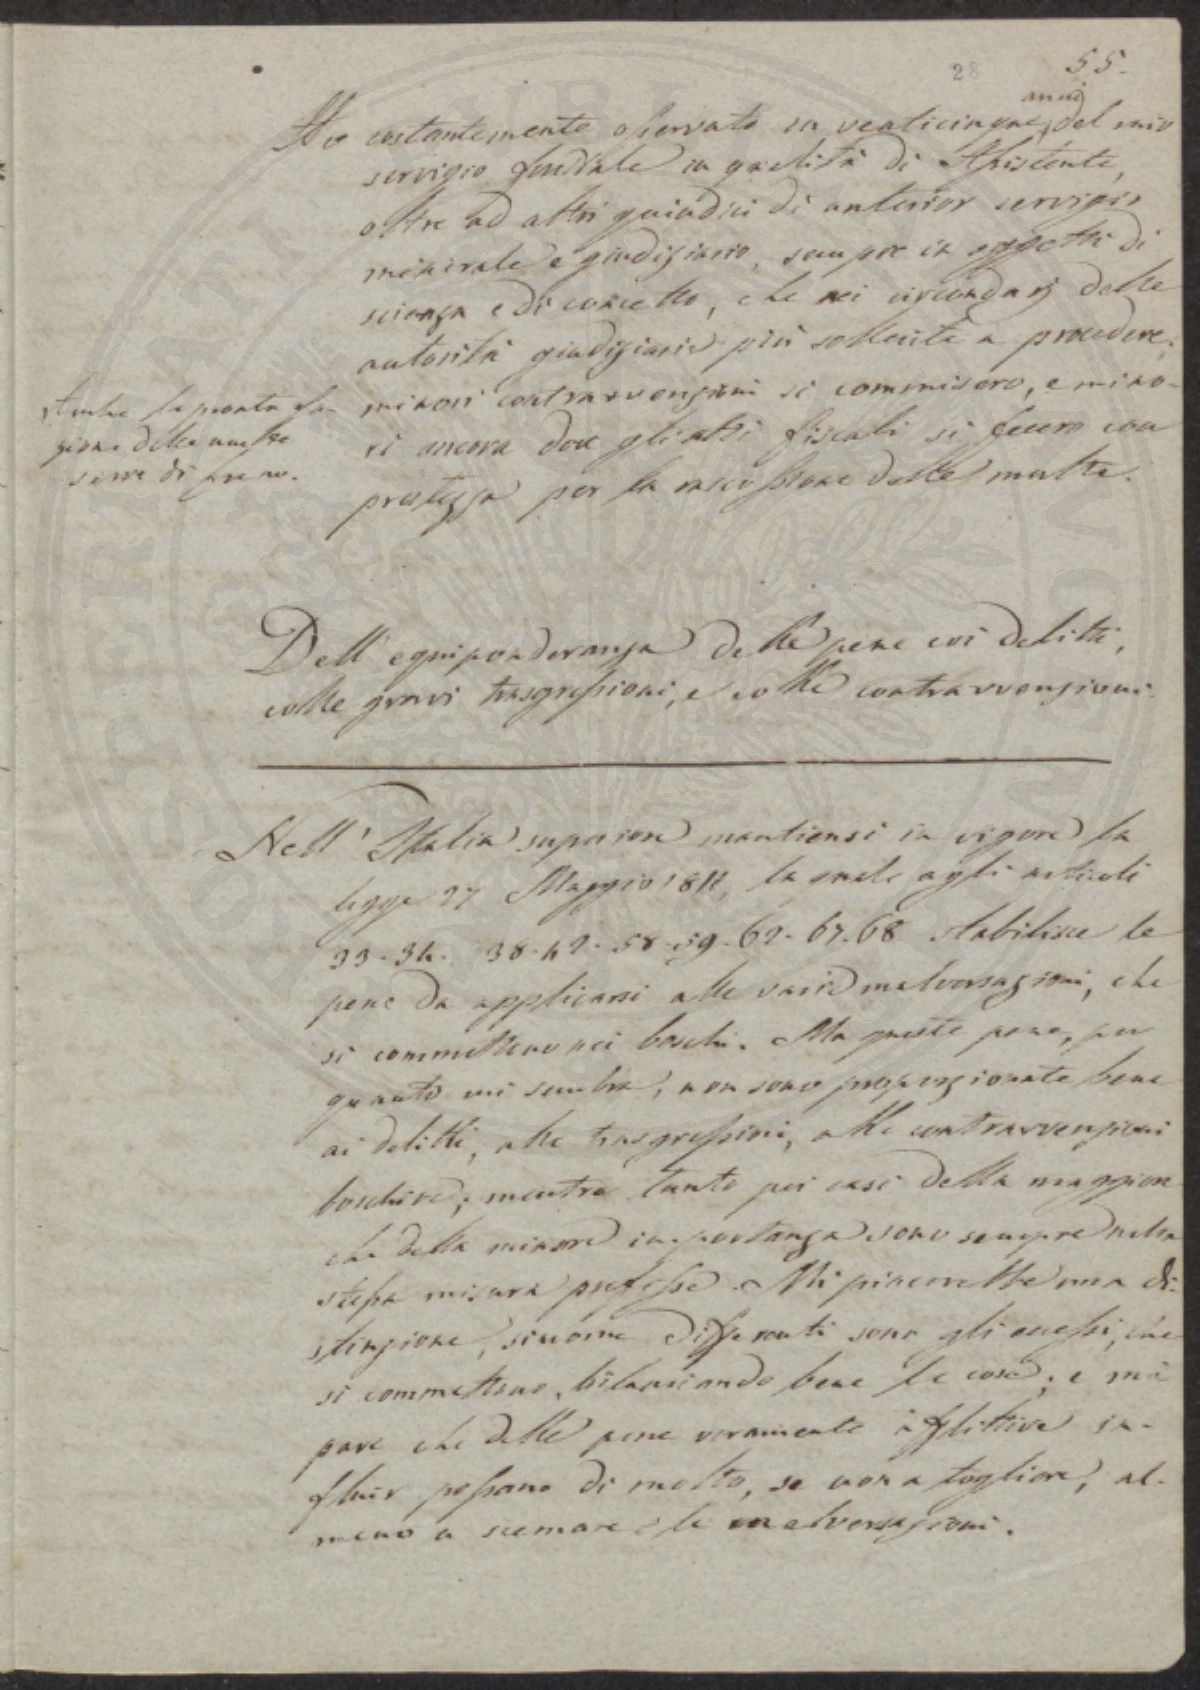 28 55.
anni
Ho costantemente osservato in venticinque del mio
servigio in qualità di Assistente,
oltre ad altri quindici di anterior servigio
minerale e giudiziario, sempre in oggetti di
scienza e di concetto, che nei circondarj delle
autorità giudiziarie più sollecite a procedere,
minori contravvenzioni si commisero, e mino-
ri ancora dove gli atti fiscali si fecero con
prestezza per la riscossione delle multe.
Anche la pronta
delle multe
serve di freno.
Dell' equiponderanza delle pene coi delitti,
colle gravi trasgressioni, e colle contravvenzioni.
Nell' Italia superiore mantiensi in vigore la
legge 27 Maggio 1811, la quale agli articoli
33. 34. 38. 42. 58. 59. 62. 67. 68 stabilisce le
pene da applicarsi alle varie malversazioni, che
si commettono nei boschi. Ma queste pene, per
quanto mi sembra, non sono proporzionate bene
ai delitti, alle trasgressioni, alle contravvenzioni
boschive; mentre tanto pei casi della maggiore
che della minore importanza sono sempre nella
stessa misura prefisse. Mi piacerebbe una di-
stinzione, siccome differenti sono gli eccessi, che
si commettono, bilanciando bene le cose; e mi
pare che delle pene veramente afflittive in-
fluir possano di molto, se non a togliere, al-
meno a scemare le malversazioni.